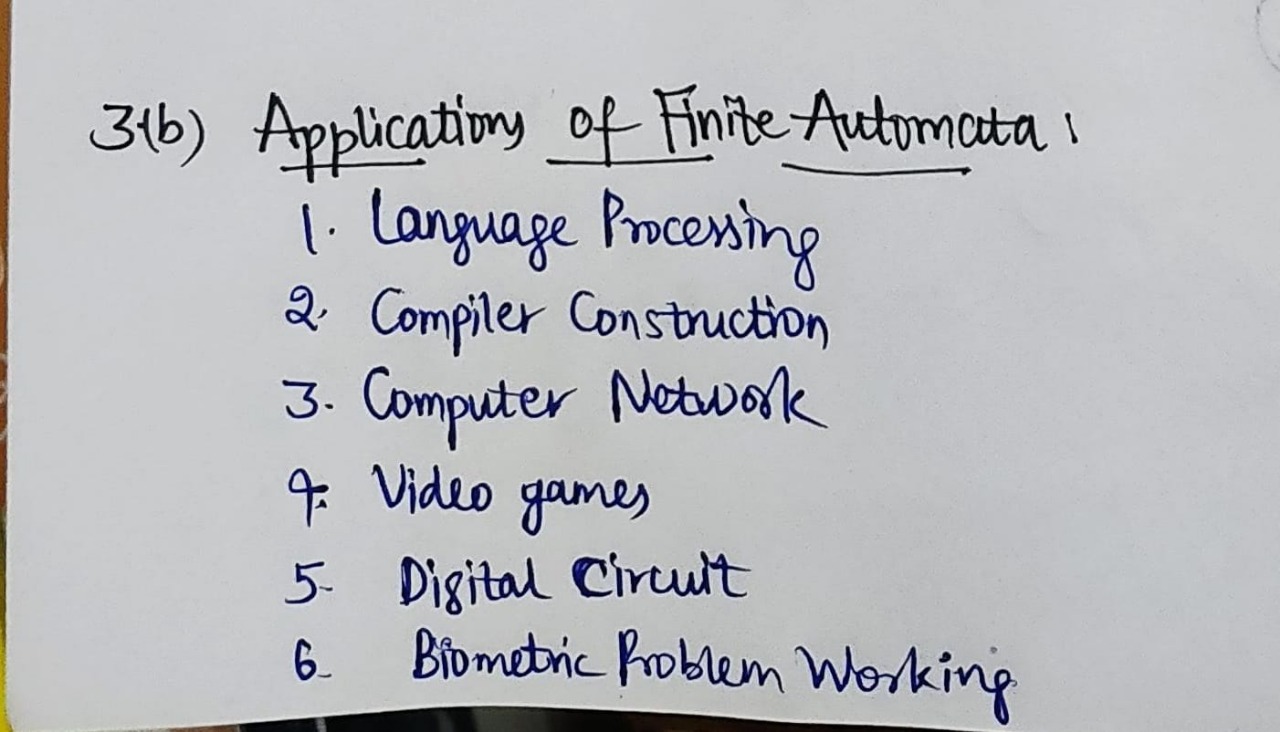 3(b) Applications of Finite Automata :
1. Language Processing
2. Compiler Construction
3. Computer Network
4. Video games
5- Digital Circuit
6- Biometric Problem Working